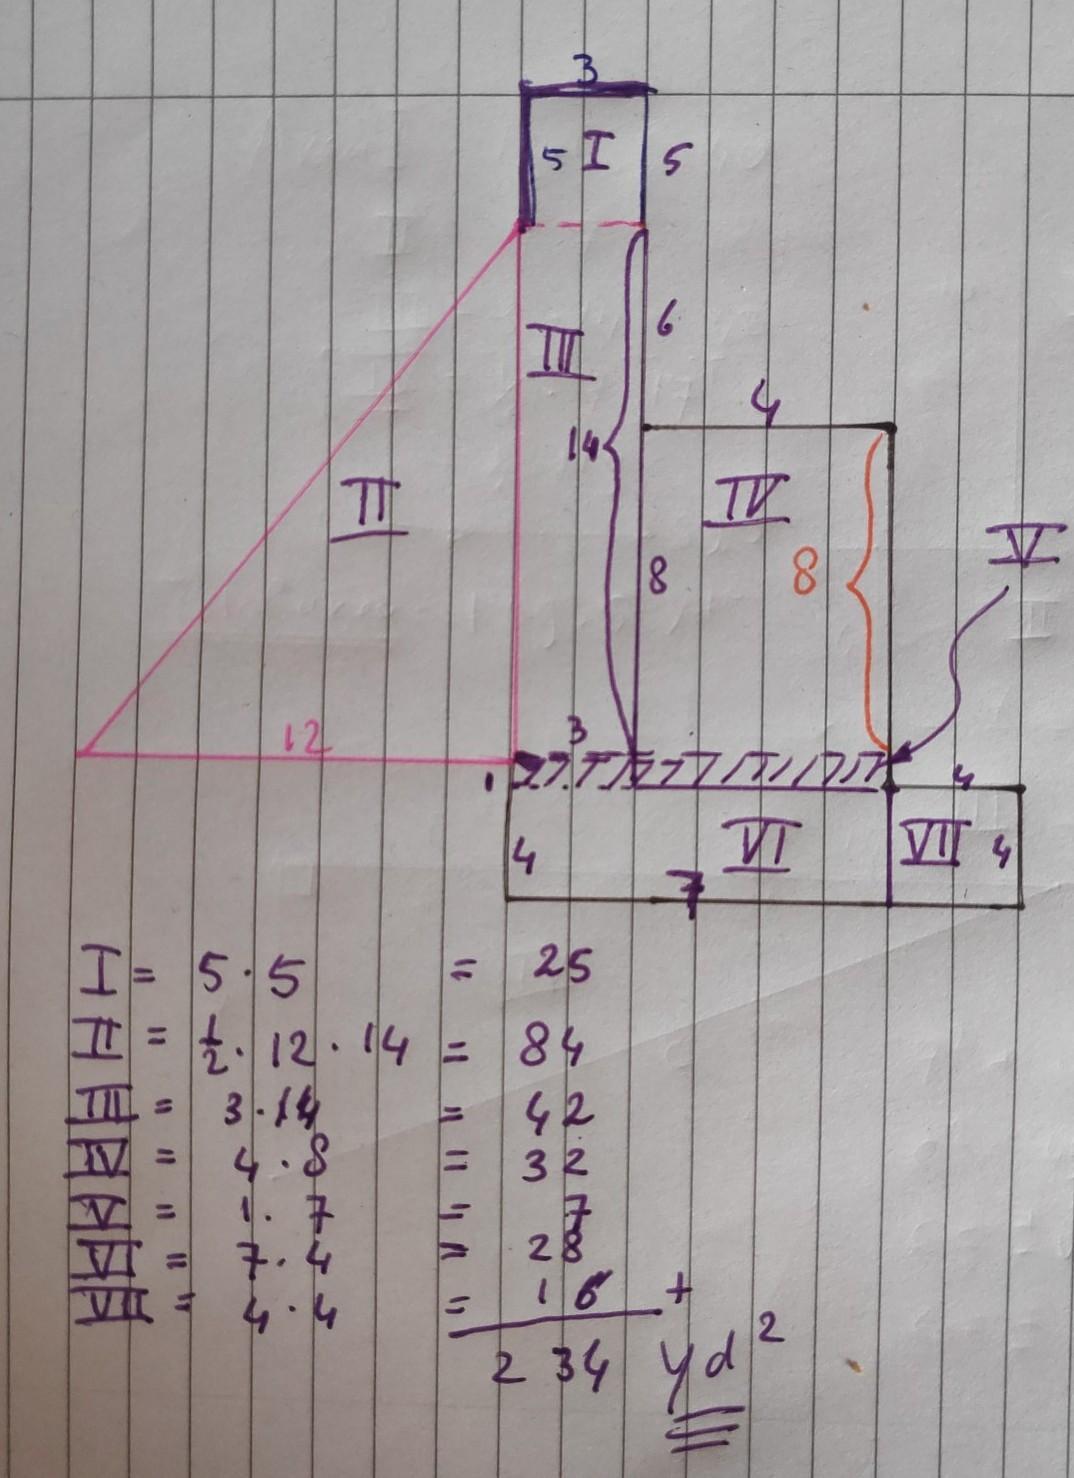 3
5 I 5
6
III
4
14
II
IV
V
8
8
12
3
1
4
4
VI
VII
4
7
I = 5 · 5 = 25
II = 1/2 · 12 · 14 = 84
III = 3 · 14 = 42
IV = 4 · 8 = 32
V = 1 · 7 = 7
VI = 7 · 4 = 28
VII = 4 · 4 = 16 +
234 yd²